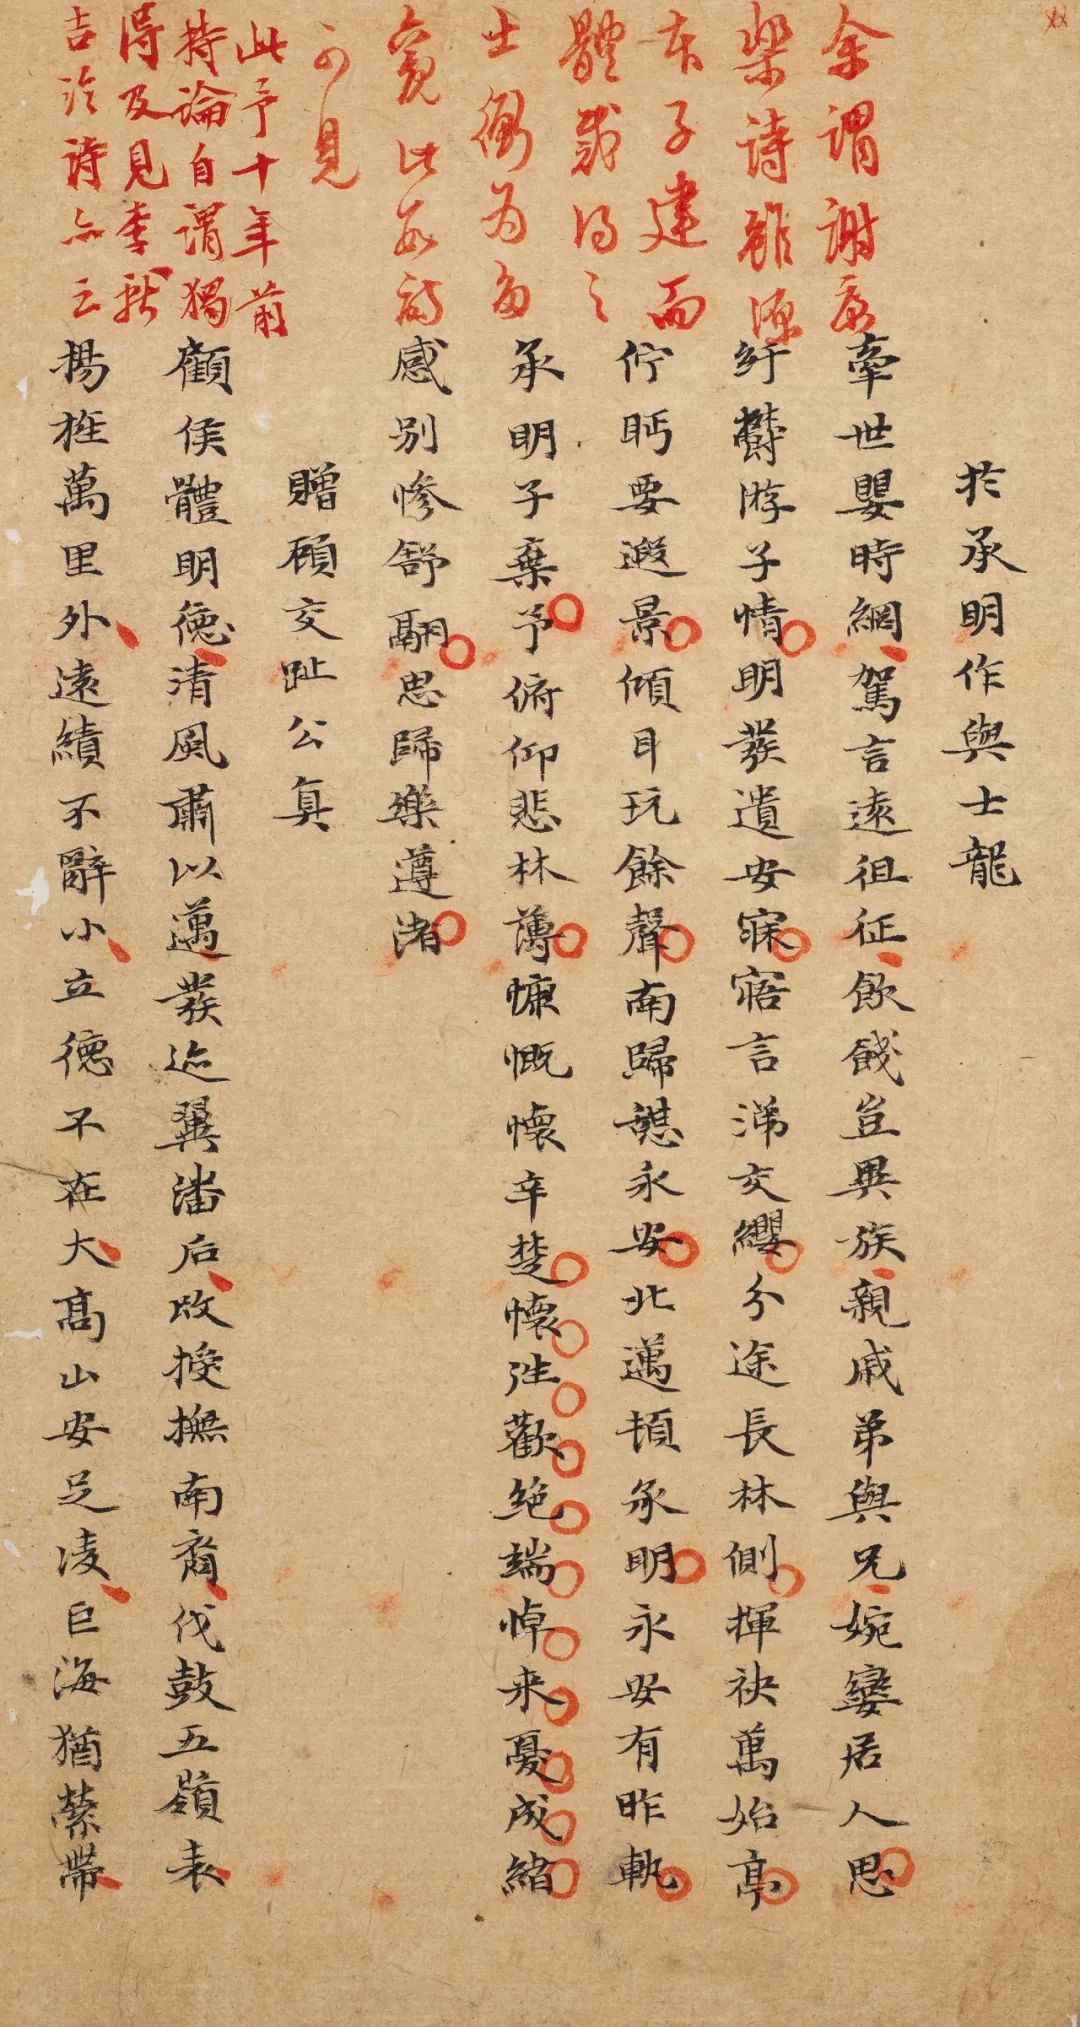 余謂謝康
樂詩雖源
本子建而
體裁得之
士衡为多
覽此數詩
可見
此予十年前
持論自謂獨
得及見李獻
吉論詩亦云
於承明作與士龍
牽世嬰時網駕言遠徂征飲餞豈異族親戚弟與兄婉孌居人思
紆鬱游子情明發遺安寐寤言涕交纓分途長林側揮袂萬始亭
佇眄要遐景傾耳玩餘聲南歸憇永安北邁頓承明永安有昨軌
承明子棄予俯仰悲林薄慷慨懷辛楚懷往歡絶端悼来憂成緒
感别惨舒翮思歸樂遵渚
贈顧交趾公真
顧侯體明德清風肅以邁發迹翼潘后改授撫南裔伐鼓五嶺表
揚旌萬里外遠績不辭小立德不在大高山安足凌巨海猶縈帶